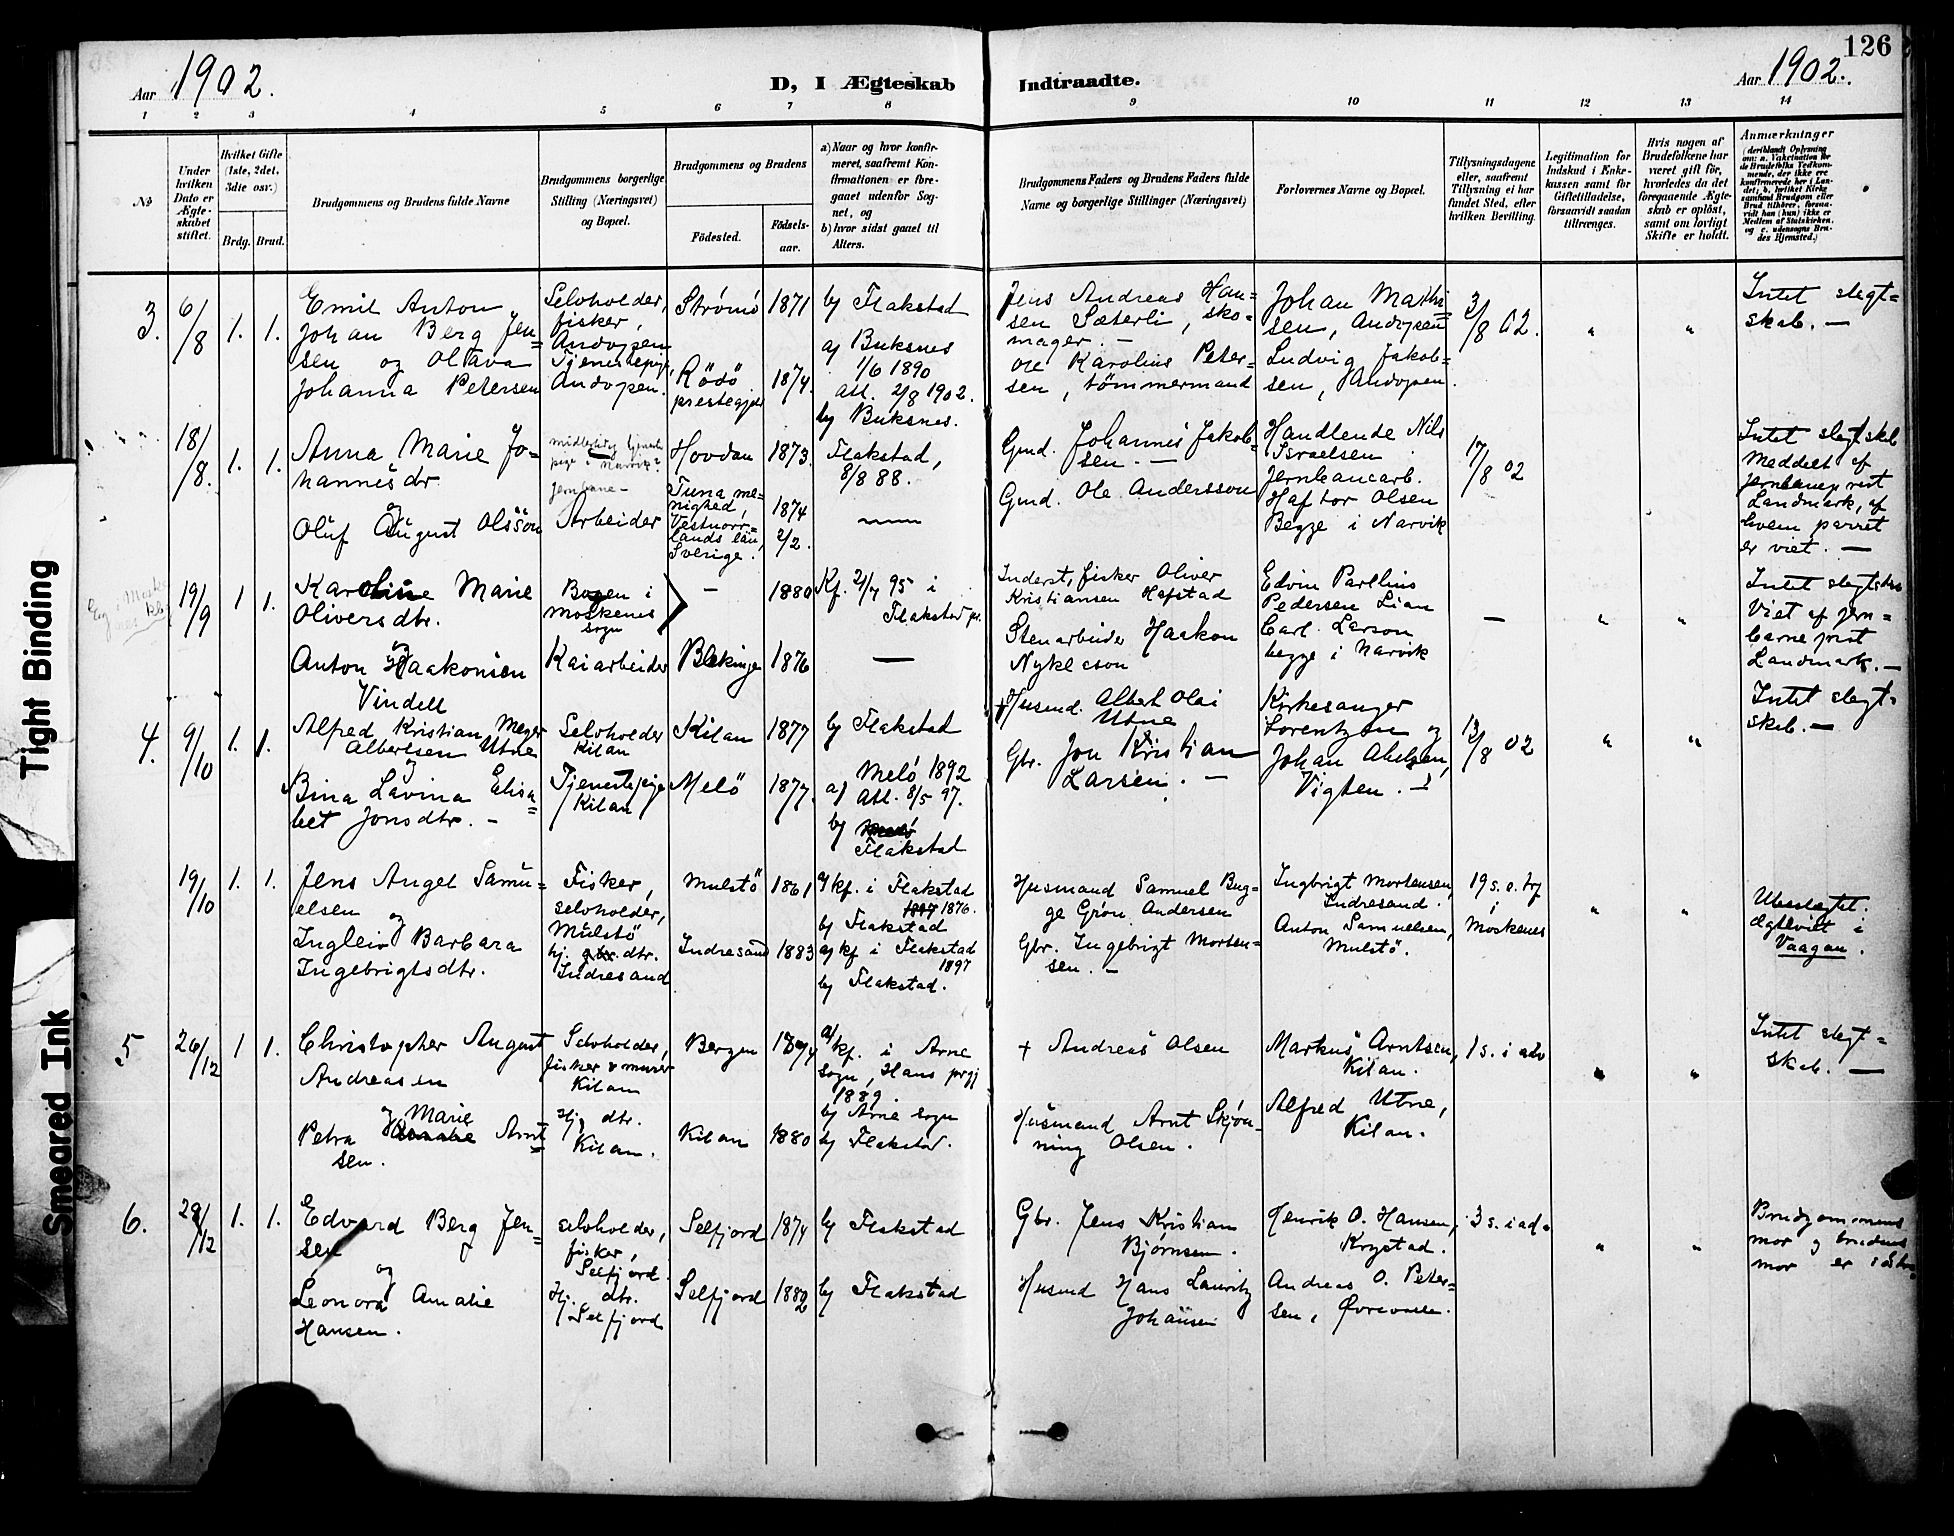 126
Aar 1902.
D, I Ægteskab Indtraadte.
Aar 1902.
1 2 3 4 5 6 7 8 9 10 11 12 13 14
No
Under hvilken Dato er Ægteskabet stiftet.
Hvilket Gifte (1ste, 2det, 3die osv.)
Brdg. Brud.
Brudgommens og Brudens fulde Navne
Brudgommens borgerlige Stilling (Næringsvei) og Bopæl.
Brudgommens og Brudens
Fødested.
Fødselsaar.
a) Naar og hvor konfirmeret, saafremt Konfirmationen er foregaaet udenfor Sognet, og
b) hvor sidst gaaet til Alters.
Brudgommens Faders og Brudens Faders fulde Navne og borgerlige Stillinger (Næringsvei)
Forlovernes Navne og Bopæl.
Tillysningsdagene eller, saafremt Tillysning ei har fundet Sted, efter hvilken Bevilling.
Legitimation for Indskud i Enkekassen samt for Giftetilladelse, forsaavidt saadan tiltrænges.
Hvis nogen af Brudefolkene har været gift før, hvorledes da det foregaaende Ægteskab er opløst, samt om lovligt Skifte er holdt.
Anmærkninger (deriblandt Oplysning om: a. Vaccination for de Brudefolks Vedkommende, der ikke ere konfirmerede her i Landet; b. hvilket Kirkesamfund Brudgom eller Brud tilhører, forsaavidt han (hun) ikke er Medlem af Statskirken, og c. udensogns Brudes Hjemsted.)
3. 6/8 1. 1.
Emil Anton
Johan Berg Jen=
sen og Olava
Johanna Petersen
Selvholder,
fisker,
Andopen
Tjenestepige,
Andopen.
Strömö 1871
Rödö
prestegjeld 1874.
b) Flakstad
a) Buksnes
1/6 1890
att. 2/8 1902.
b) Buksnes.
Jens Andreas Han=
sen Sæterli, sko=
mager. -
Ole Karolius Peter=
sen, tømmermand
Johan Mathi
sen, Andopen
Ludvig Jakob=
sen, Andopen.
3/8 02. " "
Intet slegt=
skab. -
18/8. 1. 1.
Anna Marie Jo-
hannesdr.
og
Oluf August Olsson
midlertidig tjeneste
pige i Narvik
Jernbane-
Arbeider
Hovdan 1873.
Tuna me=
nighed,
Vestnorr=
lands län,
Sverige. 1874
2/2.
Flakstad,
8/8 88.
Gmd. Johannes Jakob=
sen. -
Gmd. Ole Andersson
Handlende Nils
Israelsen
Jernbanearb.
Haftor Olsen
Begge i Narvik
17/8 02
Intet slegtskab
Meddelt af
jernbanepræst
Landmark, af
hvem parret
er viet. -
19/9 1 1.
Karoline Marie
Oliversdtr.
og
Anton Haakonsen
Vindell
Bogen i
Moskenes
sogn
Kaiarbeider
- 1880
Blekinge 1876
Kf. 21/7 95 i
Flakstad pr.
-
Inderst, fisker Oliver
Kristiansen Hofstad
Stenarbeider Haakon
Nykleson
Edvin Parelius
Pedersen Lian
Carl Larson
begge i Narvik
- " "
Intet slegtskab
Viet af jern=
baneprest
Landmark. -
4. 9/10 1. 1.
Alfred Kristian Meyer
Albertsen Utne
og
Bina Lavina Elisa=
bet Jonsdtr. -
Selvholder
Kilan
Tjenestepige
Kilan
Kilan 1877
Melö 1877.
b) Flakstad
a) Melö 1892
Att. 8/5 97.
b) Flakstad
+ Husmd. Albert Olai
Utne
Gbr. Jon Kristian
Larsen. -
Kirkesanger
Lorentzen og
Johan Abelsen,
Vigten. -
12/8 02 " "
Intet slegt=
skab. -
19/10 1. 1.
Jens Angel Samu=
elsen
og
Ingleiv Barbara
Ingebrigtsdtr.
Fisker,
selvholder,
Mulstö
hj. gbr. dtr.
Indresand
Mulstö 1861
Indresand 1883
a) kf. i Flakstad
1876.
b) Flakstad
a) kf i Flakstad
1897
b) Flakstad.
Husmand Samuel Bug=
ge Grön Andersen
Gbr. Ingebrigt Morten=
sen. -
Ingbrigt Mortensen,
Indresand.
Anton Samuelsen,
Mulstö.
19 s. e. trf
i
Moskenes
" "
Ubeslegtet.
Ægteviet i
Vaagan.
5 26/12 1 1.
Christopher August
Andreasen
og Marie
Petra Arnt=
sen.
Selvholder,
fisker & murer
Kilan
Hj. dtr.
Kilan.
Bergen 1874
Kilan 1880
a) kf. i Arne
sogn, Hans prgj
1889.
b) Arne sogn
b) Flakstad.
+ Andreas Olsen
Husmand Arnt Skjøn=
ning Olsen.
Markus Arntsen,
Kilan.
Alfred Utne,
Kilan.
1 s. i adv
" "
Intet slegt=
skab. -
6. 29/12 1. 1.
Edvard Berg Jen=
sen
og
Leonora Amalie
Hansen.
selvholder,
fisker,
Selfjord.
Hj. dtr.
Selfjord
Selfjord 1874
Selfjord 1882
b) Flakstad
b) Flakstad
Gbr. Jens Kristian
Bjørnsen.
Husmd Hans Lauritz
Johansen
Henrik O. Hansen,
Krystad.
Andreas O. Peter=
sen,
3 s. i ad.
" "
Brudgommens
mor og brudens
mor er
Tight Binding
Smeared Ink